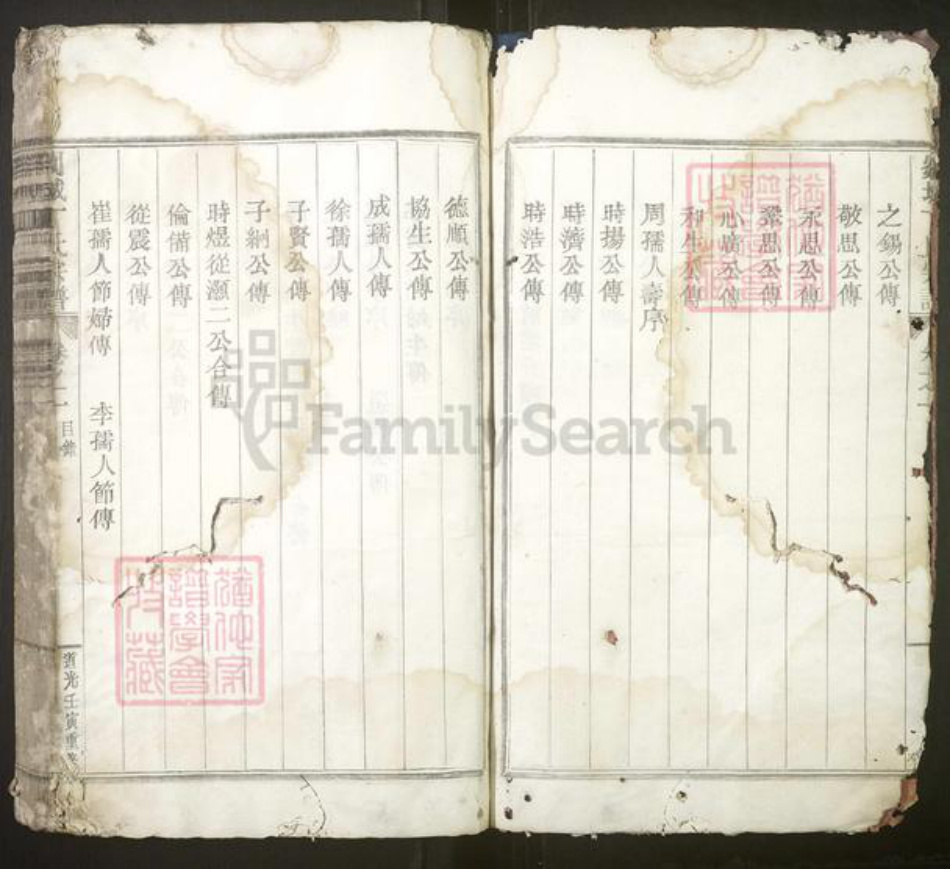 之錫公傳
敬思公傳
永思公傳
桑思公傳
心廣公傳
和生公傳
周孺人壽序
時揚公傳
時濟公傳
時浩公傳
德順公傳
協生公傳
成孺人傳
徐孺人傳
子賢公傳
子綱公傳
時煜從灝二公合傳
倫備公傳
從震公傳
崔孺人節婦傳 李孺人節傳
目錄
道光壬寅重
譜學會
藏
FamilySearch